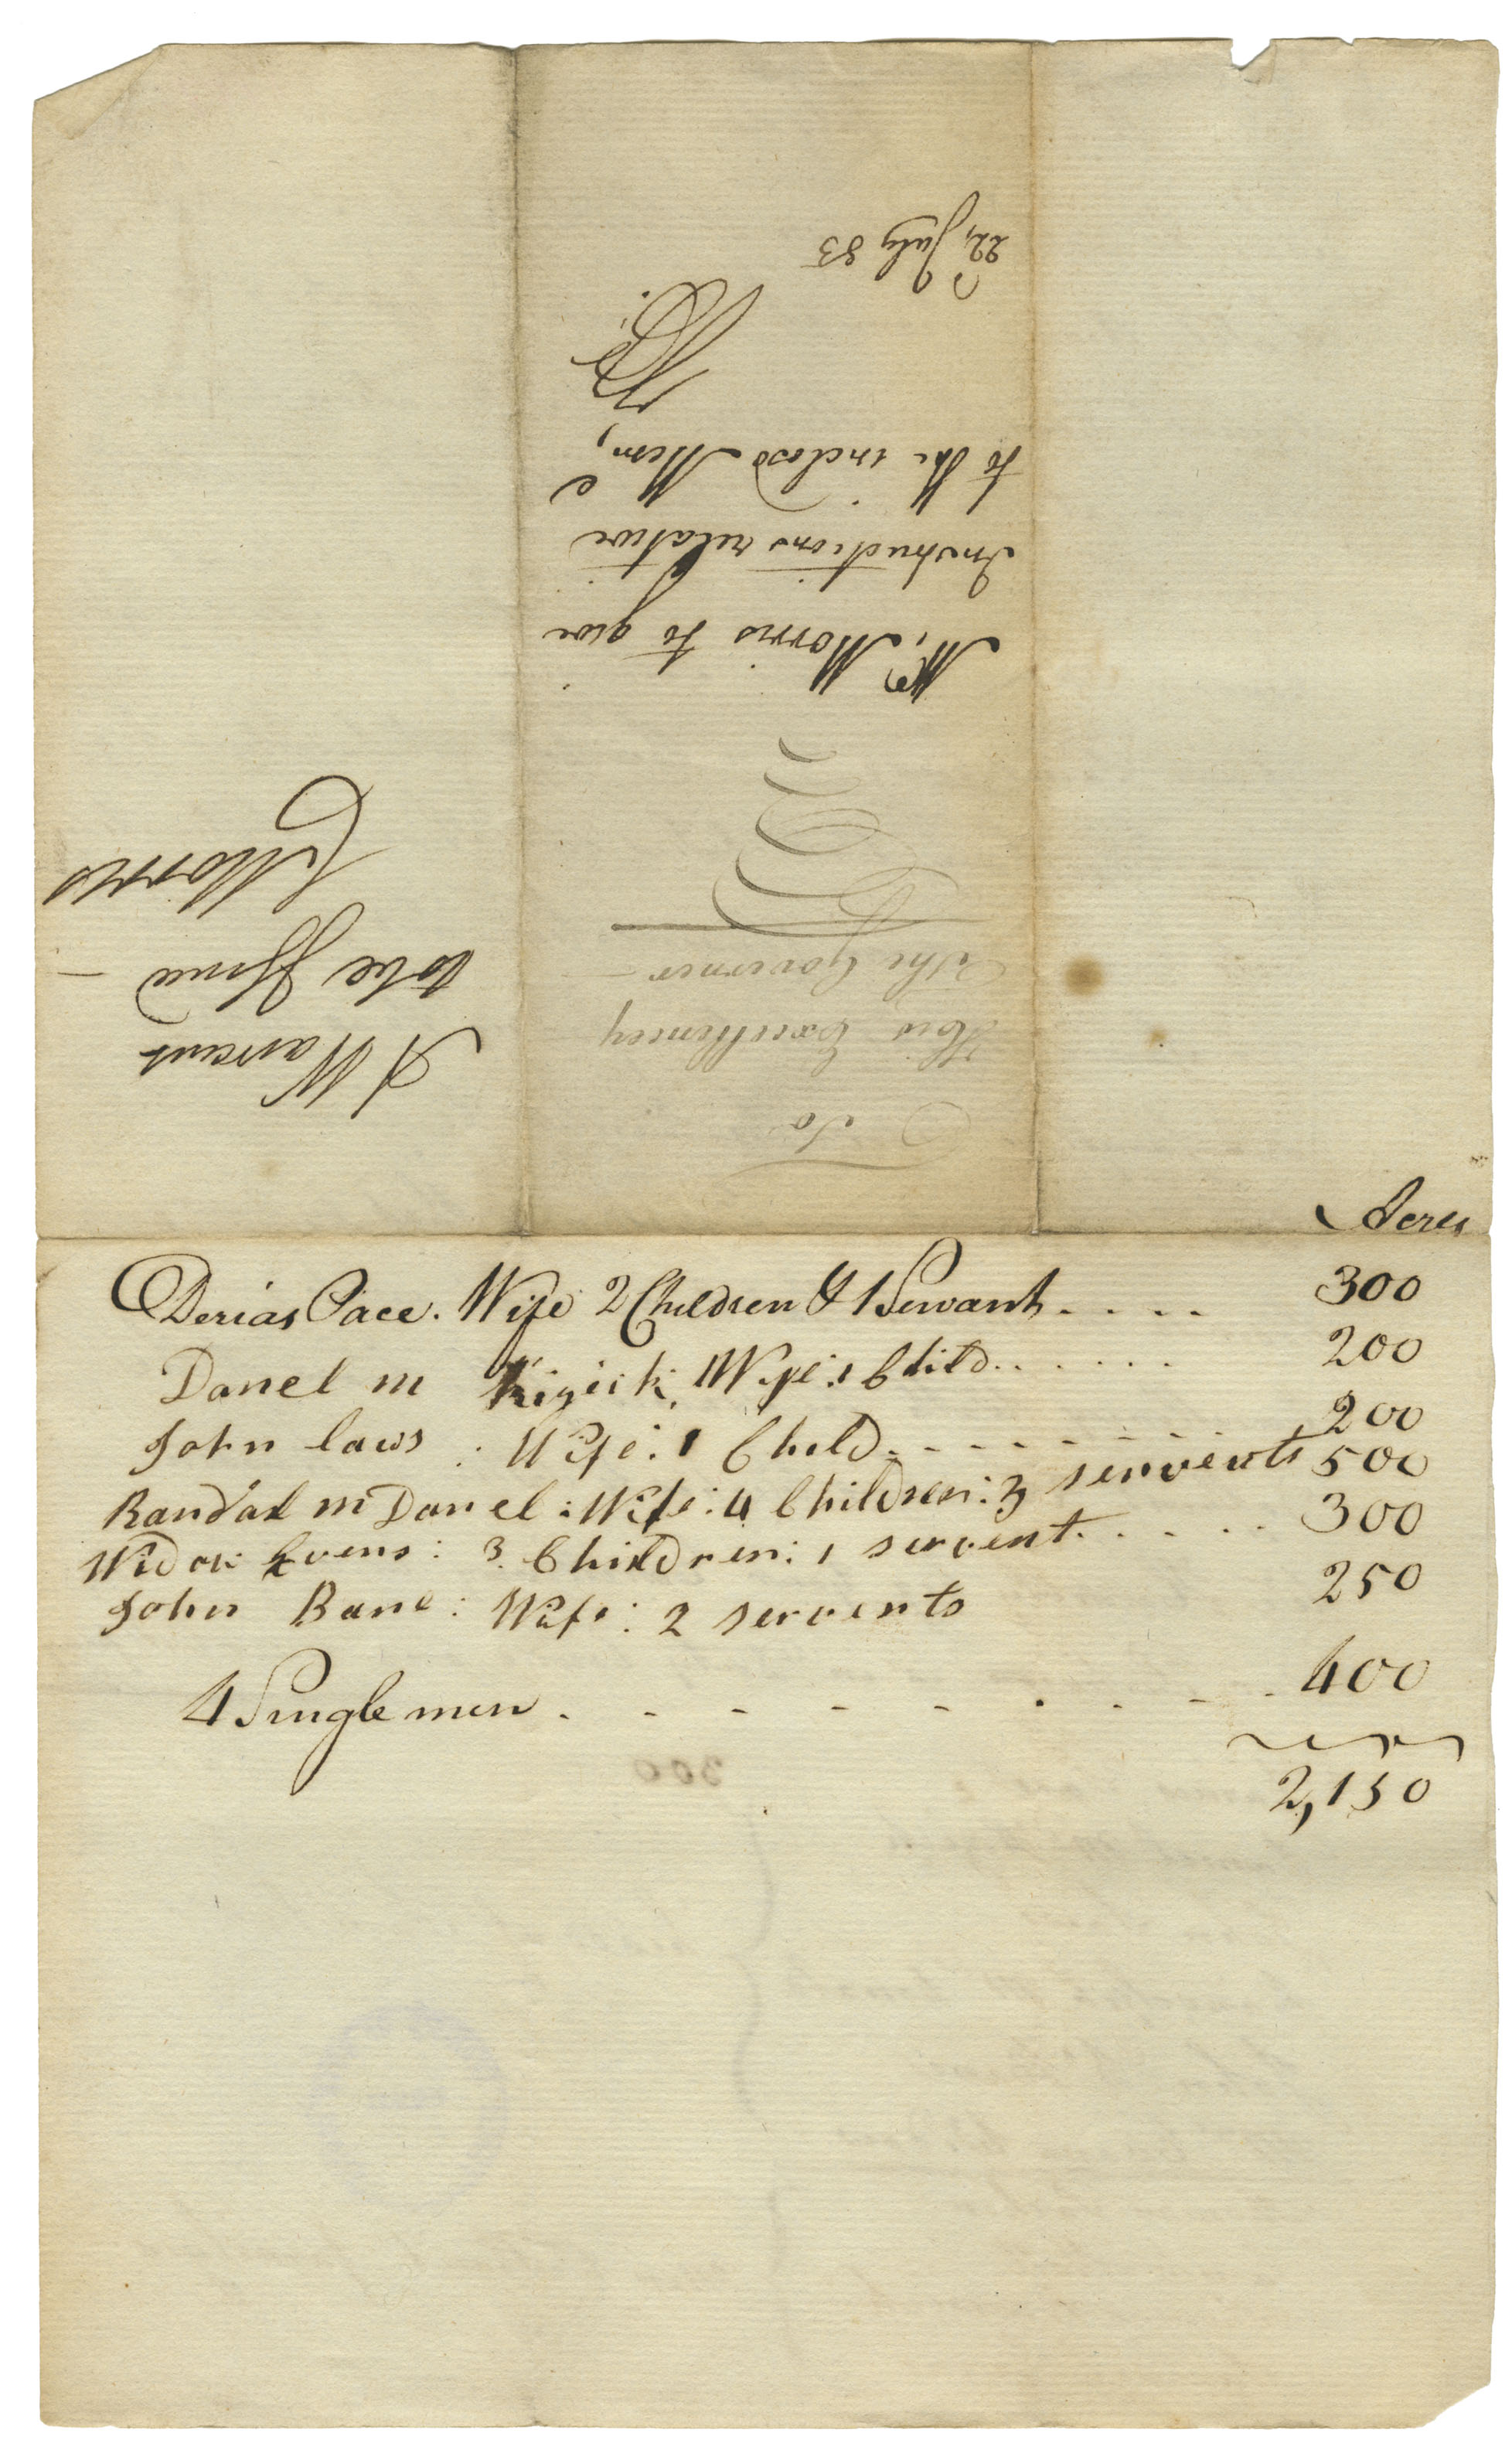 To
His Excellencey
The Governer
Mr. Morris to give
Instructions relative
to the inclosd Mem,
22, July 83
A Warrent
to be Issued
C Morris
Acres
Derias Pace. Wife 2 Children & 1 Servant.... 300
Danel m Kizick, Wife: 1 Child...... 200
John laws: Wife: 1 Child......... 200
Randal mDanel: Wife: 4 Children: 3 servents 500
Widow Evens: 3 Children: 1 servent..... 300
John Bane: Wife: 2 servents 250
4 Single men. - - - - . - - - . 400
2,150
300